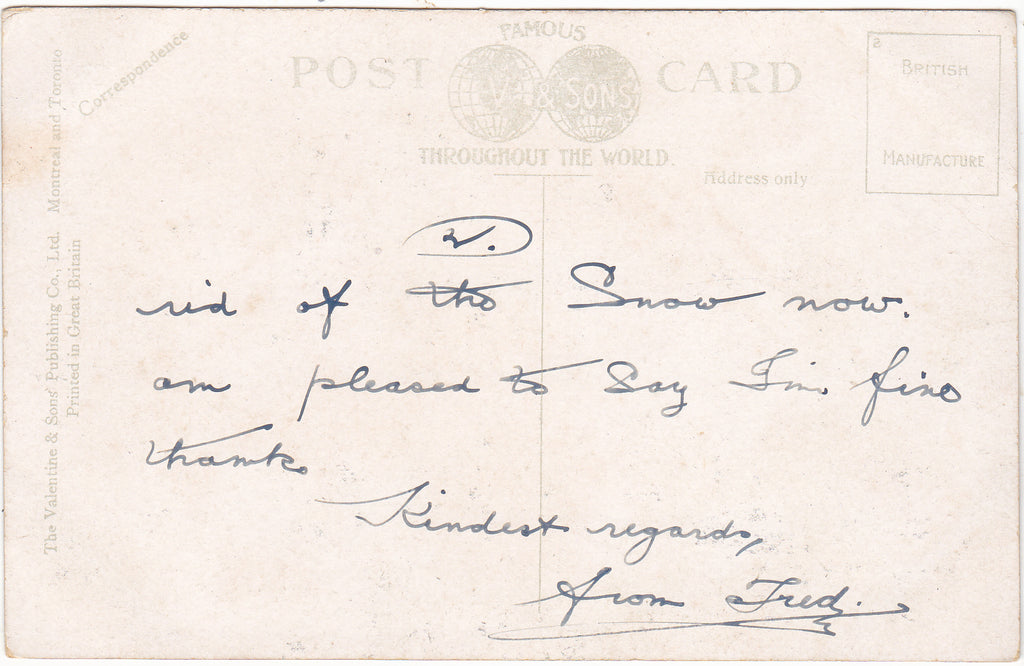 Correspondence
FAMOUS
POST CARD
V. & SONS
THROUGHOUT THE WORLD.
Address only
2
BRITISH
MANUFACTURE
The Valentine & Sons' Publishing Co., Ltd. Montreal and Toronto
Printed in Great Britain
2.
rid of the Snow now.
am pleased to Say I'm fine
thanks
Kindest regards,
from Fred.